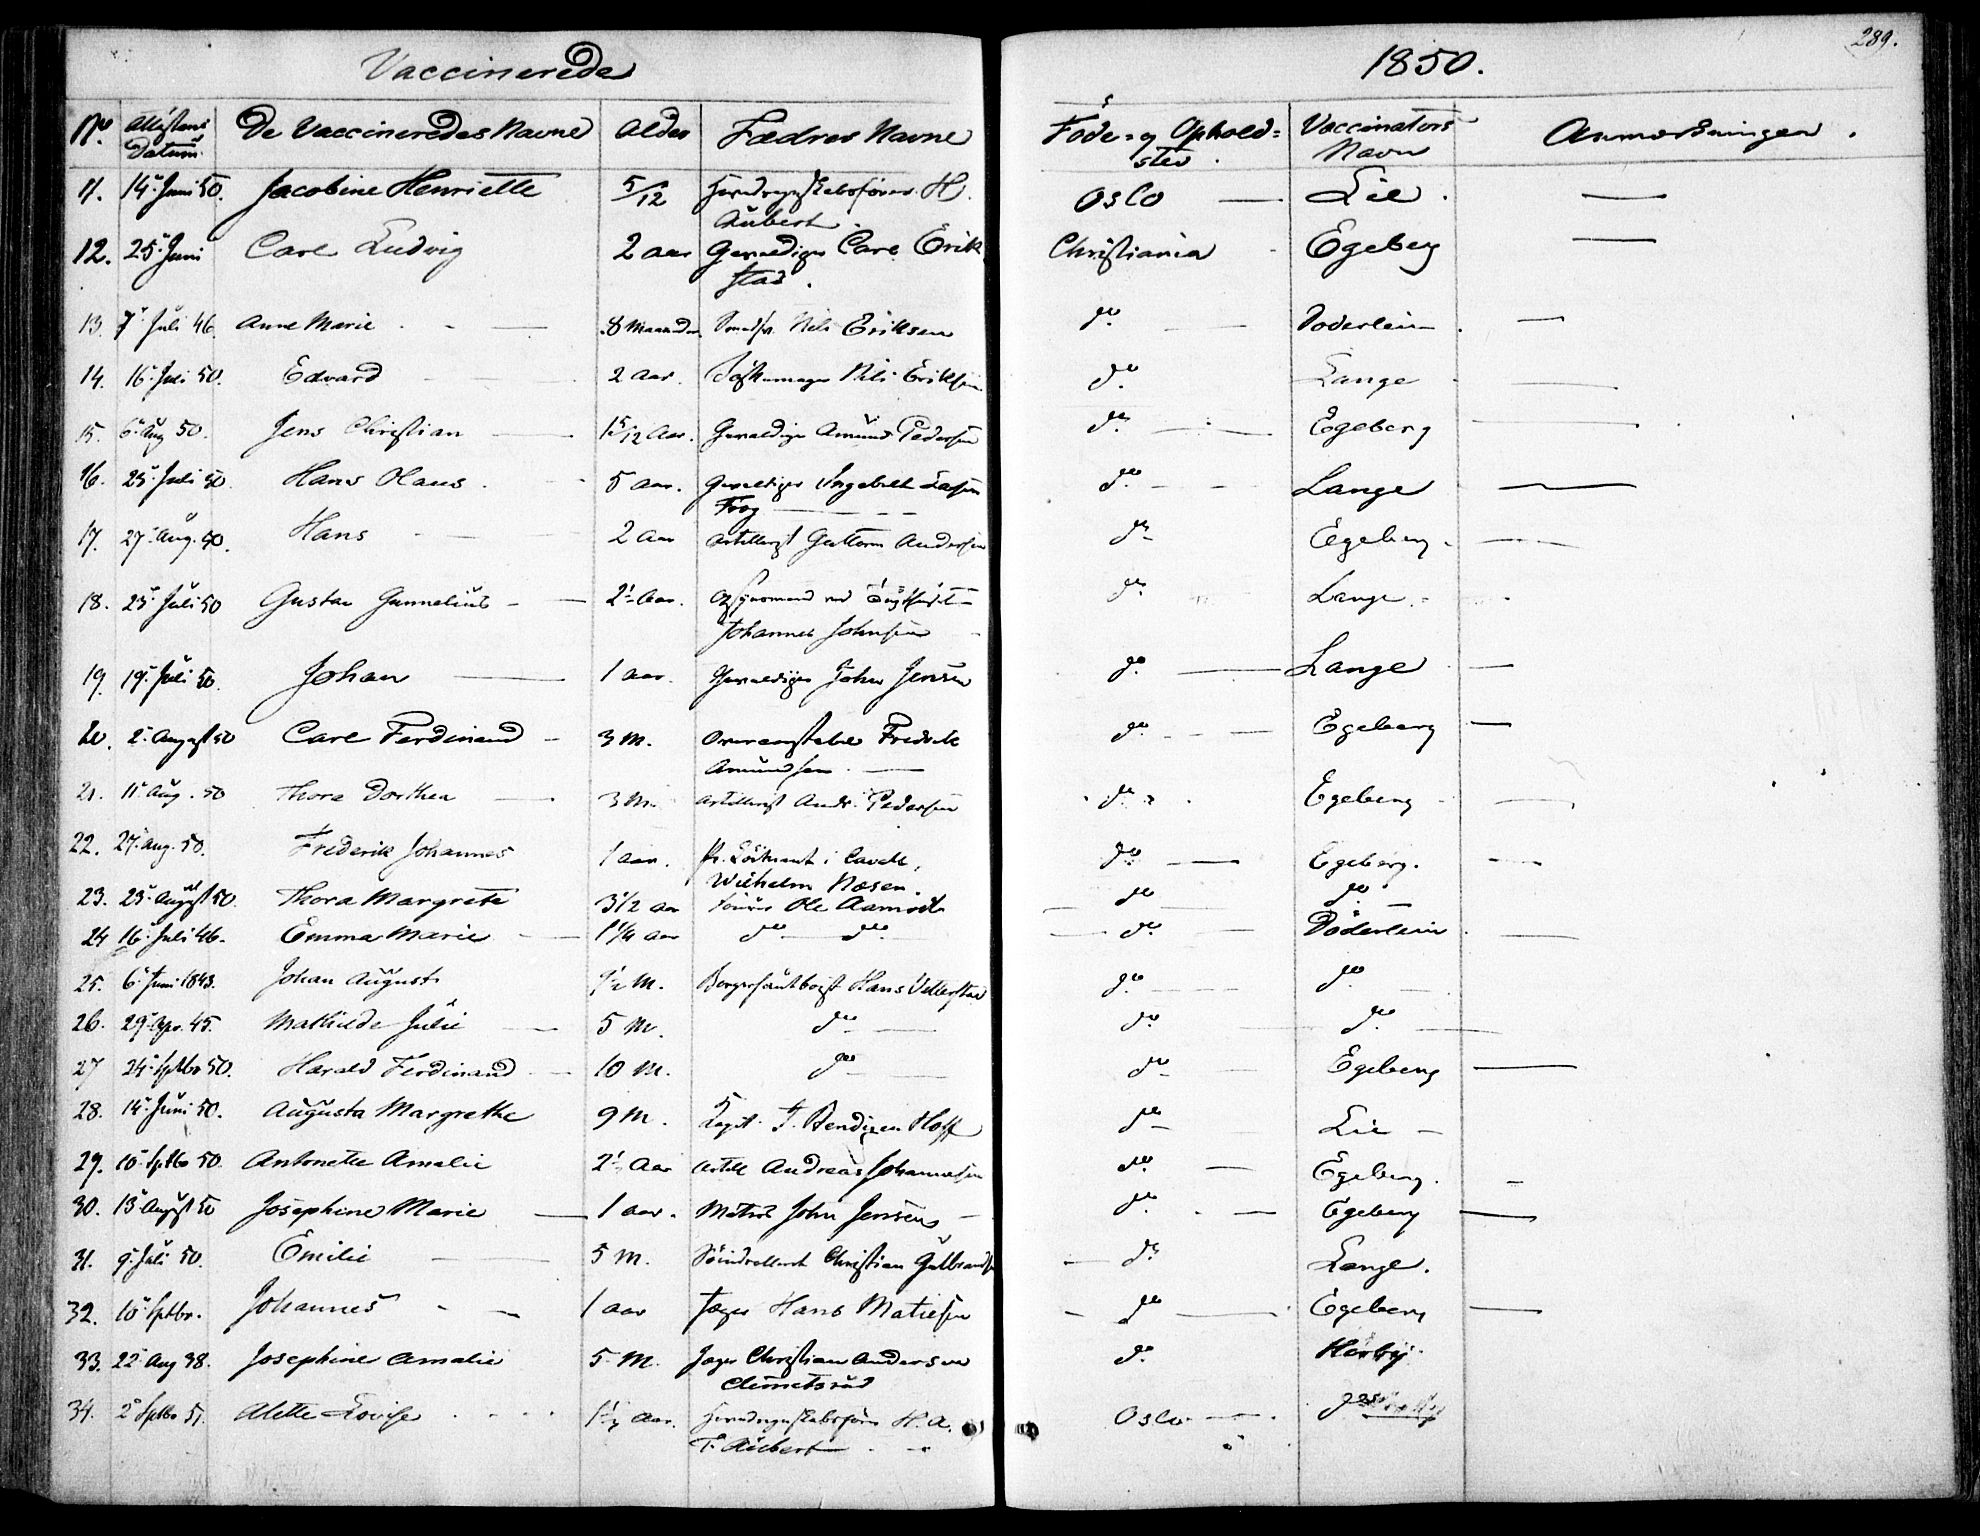 Vaccinerede 1850. 289.
No. Attestens Datum De Vaccineredes Navne Alder Fædres Navne Føde- og Opholdssted. Vaccinators Navn Anmærkninger.
11. 14. Juni 50. Jacobine Henriette 5/12 H. Aubert Oslo Lie.
12. 25. Juni Carl Ludvig 2 Aar Gevaldiger Carl Erikstad. Christiania Egeberg
13. 7. Juli 46 Anne Marie 8 Maaneder Nils Eriksen do. Döderlein
14. 16. Juli 50. Edvard 2 Aar. Nils Eriksen do. Lange
15. 6. Aug 50. Jens Christian 1 5/12 Aar. Gevaldiger Amund Pedersen do. Egeberg
16. 25. Juli 50. Hans Olaus 5 Aar. Gevaldiger Ingebret Frog do. Lange
17. 27. Aug. 50. Hans 2 Aar Artillerist Guttorm Andersen do. Egeberg.
18. 25. Juli 50 Gustav Gunnelius 2½ Aar. Opsynsmand ved Johannes Johnsen do. Lange.
19. 19. Juli 50. Johan 1 Aar. Gevaldiger John Jensen do. Lange
20. 2. August 50 Carl Ferdinand 3 M. Overconstabel Fredrik Amundsen. do. Egeberg
21. 11. Aug. 50 Thora Dorthea 3 M. Artillerist Andr. Pedersen do. Egeberg
22. 27. Aug. 50. Frederik Johannes 1 Aar. Pr. Løitnant i Cavall. Wilhelm Næsen. do. Egeberg.
23. 23. August 50. Thora Margrete 3½ Aar Ole Aamodt do. do.
24 16. Juli 46. Emma Marie 1¼ Aar do. do. do. Döderlein
25. 6. Juni 1843. Johan August M. Hans do. do.
26. 29. Apr. 45. Mathilde Julie 5 M. do. do. do.
27 24. Sptbr 50. Harald Ferdinand 10 M. do. do. Egeberg
28. 14. Juni 50. Augusta Margrethe 9 M. Kapt. T. Bendixen Hoff do. Lie
29. 10. Sptbr 50. Antonette Amalie 2½ Aar Artill Andreas Johannesen do. Egeberg.
30. 13. August 50 Josephine Marie 1 Aar. Matros John Jensen do. Egeberg
31. 9. Juli 50. Emilie 5 M. Christian Gulbrands do. Lange.
32. 10. Sptbr. Johannes 1 Aar Jæger Hans Matiesen do. Egeberg
33. 22. Aug 38. Josephine Amalie 5 M. Jæger Christian Andersen do.
34. 2. Sptbr 51. Alette Lovise 1½ Aar. H. A. T. Aubert Oslo do.